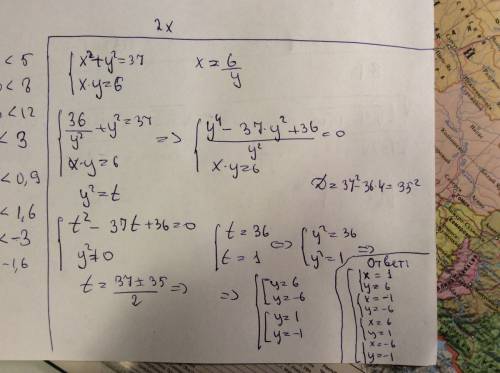 2x
< 5
< 8
< 12
< 3
< 0,9
< 1,6
< -3
-1,6
{ x² + y² = 37
x · y = 6
x = 6/y
{ 36/y² + y² = 37
x · y = 6
=> { (y⁴ - 37 · y² + 36)/y² = 0
x · y = 6
y² = t
D = 37² - 36·4 = 35²
{ t² - 37t + 36 = 0
y² ≠ 0
{ t = 36
t = 1
<=> { y² = 36
y² = 1
=>
t = (37 ± 35)/2 =>
=> { [ y = 6
y = -6
[ y = 1
y = -1
Ответ:
{ x = 1
y = 6
{ x = -1
y = -6
{ x = 6
y = 1
{ x = -6
y = -1